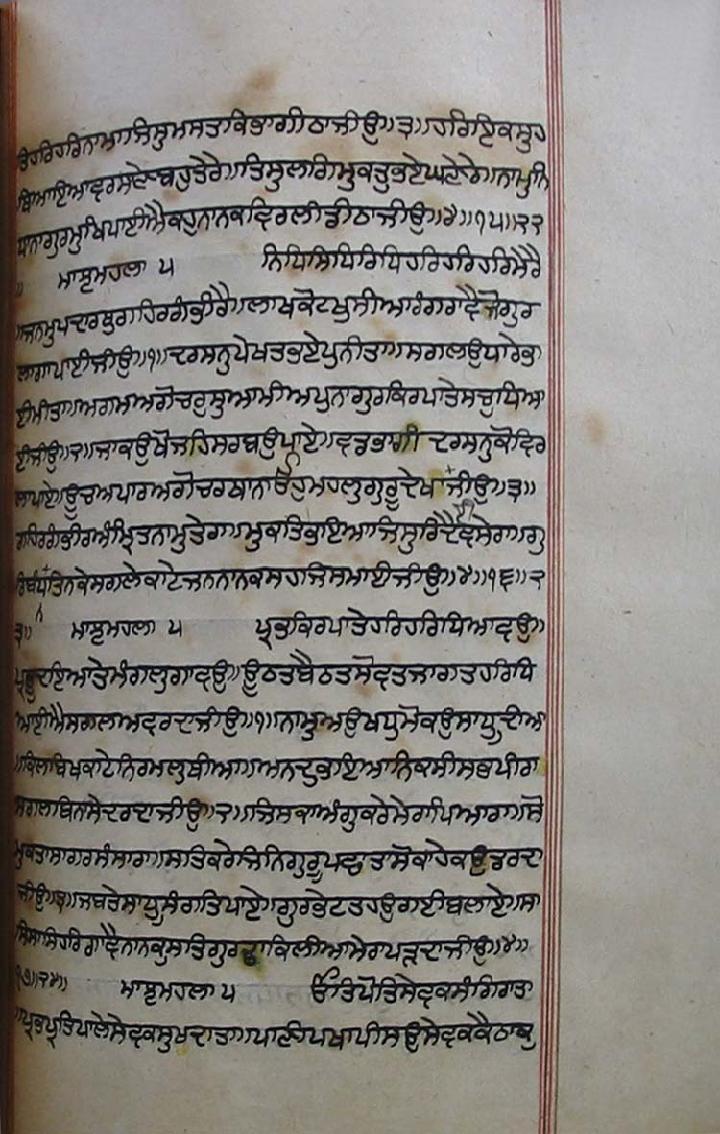 ਤੇਹਰਿਹਰਿਨਾਮਾ॥ਜਿਸੁਮਸਤਾਕਿਭਾਗੀਠਾਜੀਉ॥੩॥ਹਰਿਇਕਸੁਹ
ਬਿਆਇਆਦਰਸਣੇਬਹੁਤੇਰੇ॥ਤਿਸੁਲਗਿਮੁਕਤੁਭਏਘਣੇਰੇ॥ਨਾਮੁਨਿ
ਧਾਨਾਗੁਰਮੁਖਿਪਾਈਐਕਹੁਨਾਨਕਵਿਰਲੀਡੀਠਾਜੀਉ॥੪॥੧੫॥੨੨
॥ ਮਾਝਮਹਲਾ ੫ ਨਿਧਿਸਿਧਿਰਿਧਿਹਰਿਹਰਿਹਰਿਮੇਰੈ
॥ਜਨਮੁਪਦਾਰਥੁਗਹਿਰਗੰਭੀਰੈ॥ਲਾਖਕੋਟਖੁਸੀਆਰੰਗਰਾਵੈਜੋਗੁਰ
ਲਾਗਾਪਾਈਜੀਉ॥੧॥ਦਰਸਨੁਪੇਖਤਭਏਪੁਨੀਤਾ॥ਸਗਲਉਧਾਰੇਭਾ
ਈਮੀਤਾ॥ਅਗਮਅਗੋਚਰੁਸੁਆਮੀਅਪੁਨਾਗੁਰਕਿਰਪਾਤੇਸਚੁਧਿਆ
ਈਜੀਉ॥੨॥ਜਾਕਉਖੋਜਹਿਸਰਬਉਪਾਏ॥ਵਡਭਾਗੀ ਦਰਸਨੁਕੋਵਿਰ
ਲਾਪਾਏ॥ਊਚਅਪਾਰਅਗੋਚਰਥਾਨਾਓਹੁਮਹਲੁਗੁਰੂਦੇਖਾਜੀਉ॥੩॥
ਗਹਿਰਗੰਭੀਰਅੰਮ੍ਰਿਤਨਾਮੁਤੇਰਾ॥ਮੁਕਤਿਭਇਆਜਿਸੁਰਿਦੈਵਸੇਰਾ॥ਗੁ
ਰਿਬੰਧਾਤਿਨਕੇਸਗਲੇਕਾਟੇਜਨਨਾਨਕਸਹਜਿਸਮਾਈਜੀਉ॥੪॥੧੬॥੨
੩॥ ਮਾਝਮਹਲਾ ੫ ਪ੍ਰਭਕਿਰਪਾਤੇਹਰਿਹਰਿਧਿਆਵਉ॥
ਪ੍ਰਭੂਦਇਆਤੇਮੰਗਲੁਗਾਵਉ॥ਊਠਤਬੈਠਤਸੋਵਤਜਾਗਤਹਰਿਧਿ
ਆਈਐਸਗਲਅਵਰਦਾਜੀਉ॥੧॥ਨਾਮੁਅਉਖਧੁਮੋਕਉਸਾਧੂਦੀਆ
॥ਕਿਲਬਿਖਕਾਟੇਨਿਰਮਲੁਥੀਆ॥ਅਨਦੁਭਇਆਨਿਕਸੀਸਭਪੀਰਾ
ਸਗਲਬਿਨਸੇਦਰਦਾਜੀਉ॥੨॥ਜਿਸਕਾਅੰਗੁਕਰੇਮੇਰਾਪਿਆਰਾ॥ਸੋ
ਮੁਕਤਾਸਾਗਰਸੰਸਾਰਾ॥ਸਤਿਕਰੇਜਿਨਿਗੁਰੂਪਛਾਤਾਸੋਕਾਹੇਕਉਡਰਦਾ
ਜੀਉ॥੩॥ਜਬਤੇਸਾਧੂਸੰਗਤਿਪਾਏ॥ਗੁਰਭੇਟਤਹਉਗਈਬਲਾਏ॥ਸਾ
ਸਿਸਾਸਿਹਰਿਗਾਵੈਨਾਨਕੁਸਤਿਗੁਰਢਾਕਿਲੀਆਮੇਰਾਪੜਦਾਜੀਉ॥੪॥
੧੭॥੨੪॥ ਮਾਝਮਹਲਾ ੫ ਓਤਿਪੋਤਿਸੇਵਕਸੰਗਿਰਾਤਾ
॥ਪ੍ਰਭਪ੍ਰਤਿਪਾਲੇਸੇਵਕਸੁਖਦਾਤਾ॥ਪਾਣੀਪਖਾਪੀਸਉਸੇਵਕਕੈਠਾਕੁ